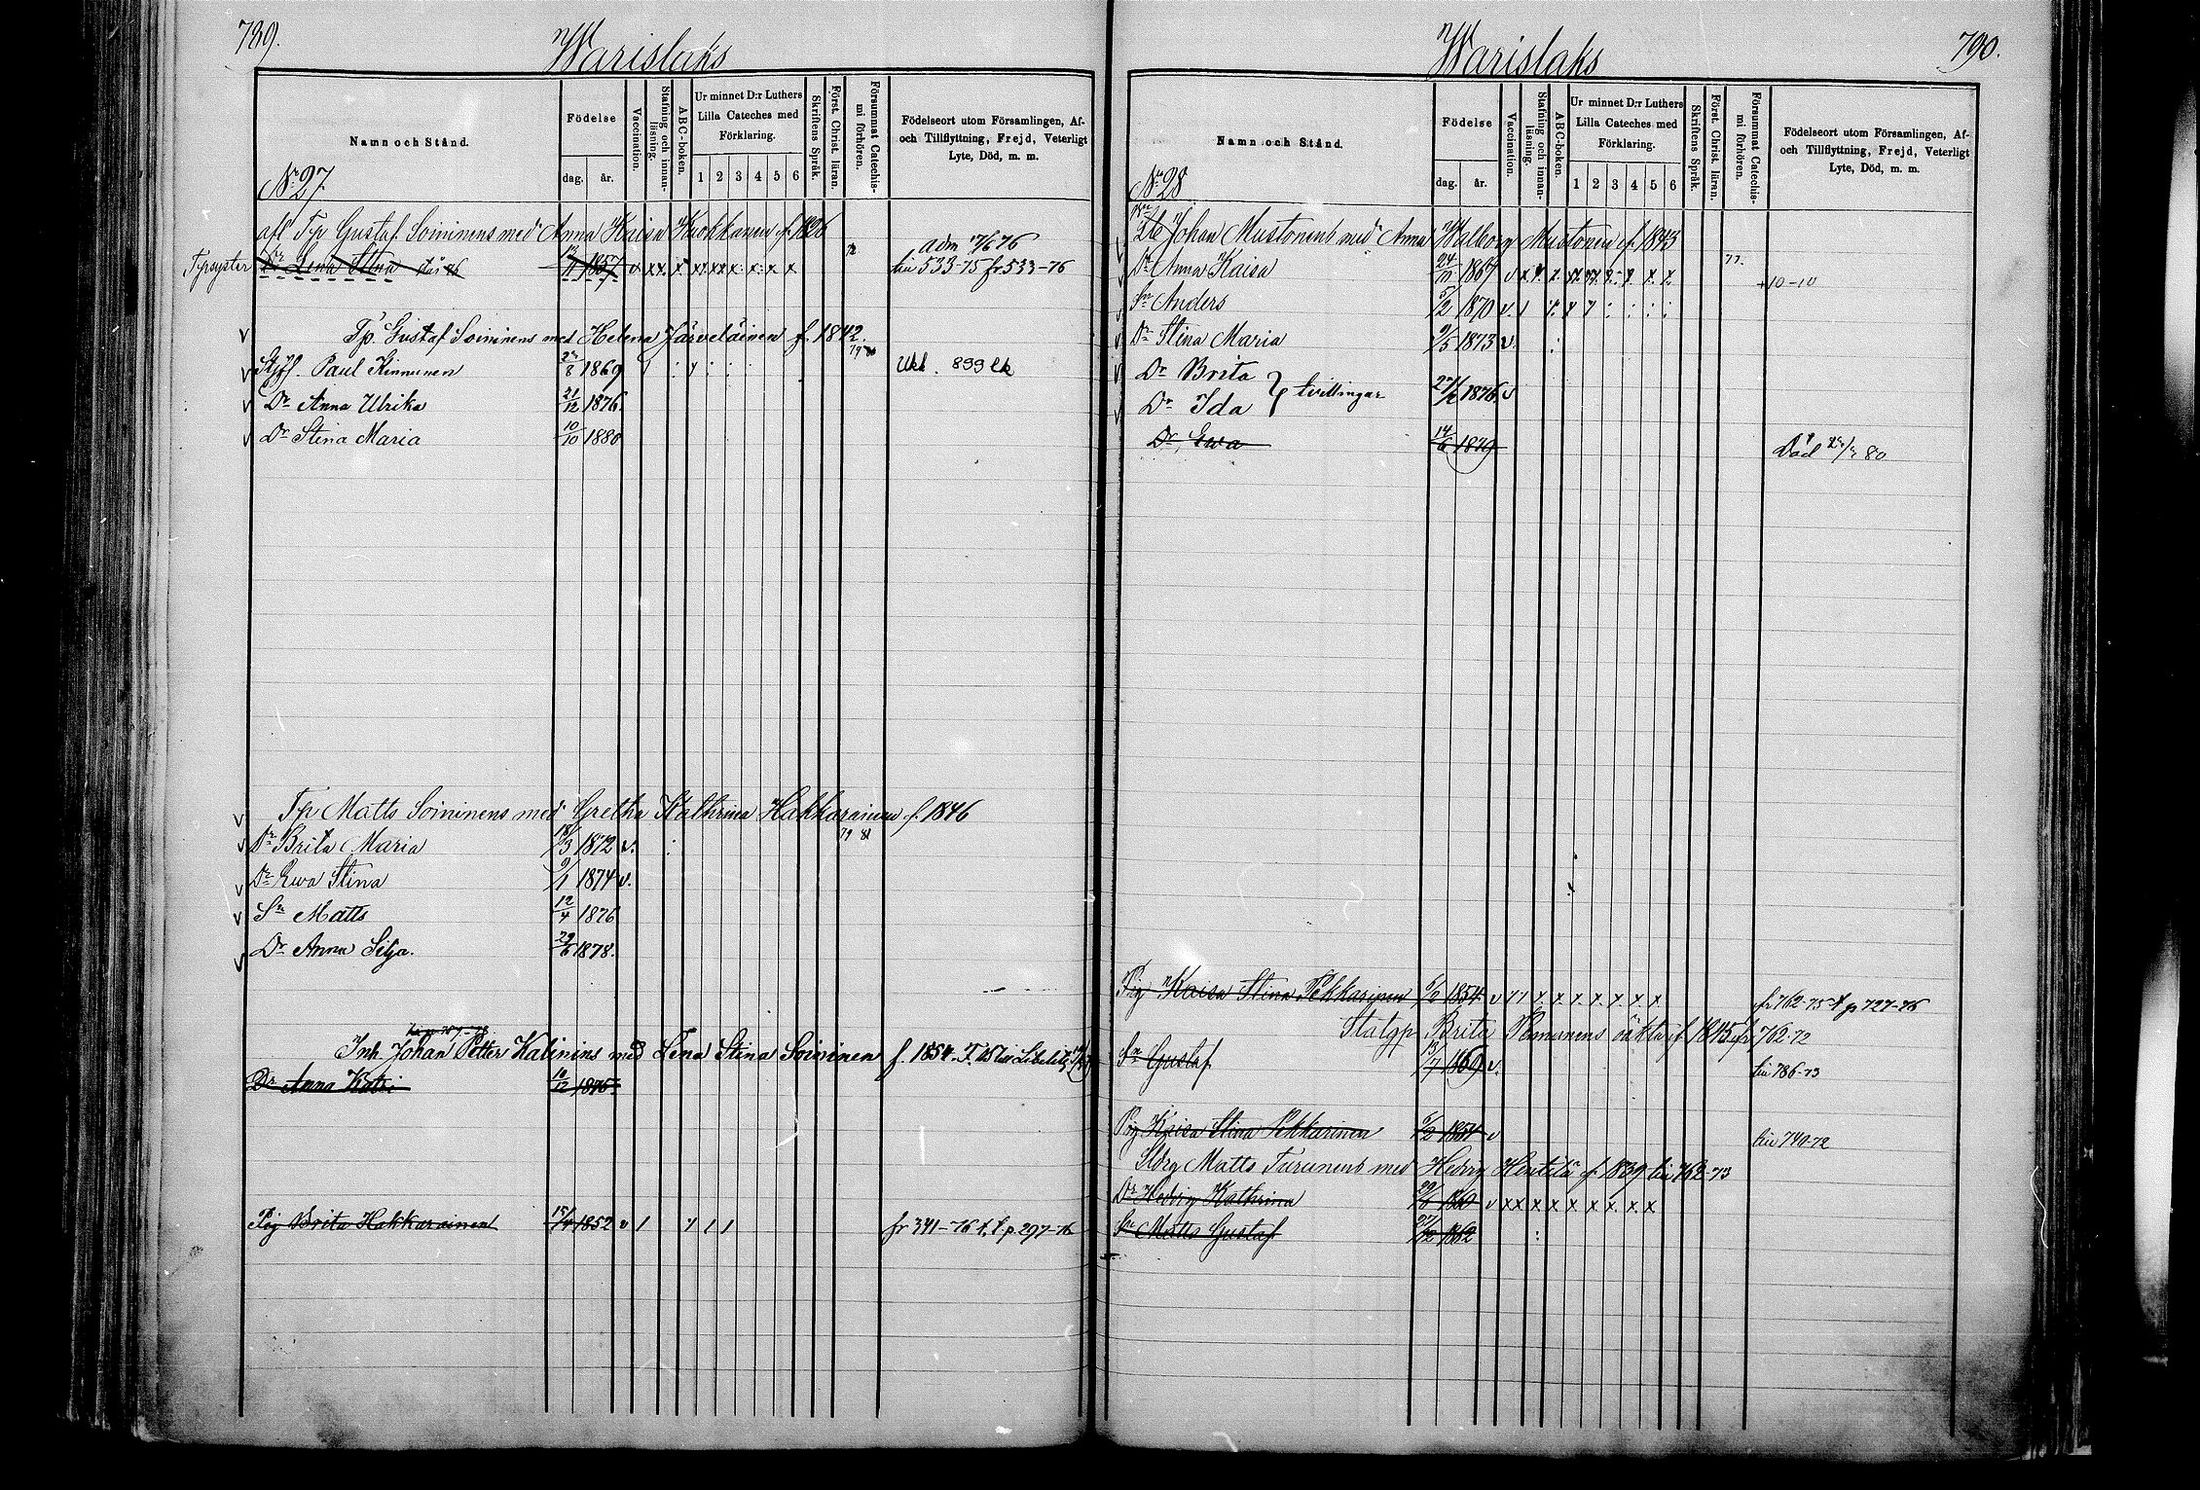 789.
Warislaks
Namn och Stånd.
Födelse
dag.
år.
Vaccination.
Stafning och innan-läsning.
ABC-boken.
Ur minnet D:r Luthers Lilla Cateches med Förklaring.
1 2 3 4 5 6
Skriftens Språk.
Först. Christ. läran.
Försummat Catechis-mi förhören.
Födelseort utom Församlingen, Af-
och Tillflyttning, Frejd, Veterligt
Lyte, Död, m. m.
No 27
afl Tp Gustaf Soininens med Anna Kaisa f. 1826
Tpsyster Dr Lena Stina 1857 v xx x x x x x x x adm 76
533-75 fr 533-76
v Tp. Gustaf Soininens med Helena Järveläinen f. 1842.
v Paul Kinnunen 1869 Ukk. 899 lk
v Dr Anna Ulrika 21/12 1876.
v Dr Stina Maria 10/10 1880
v Tp Matts Soininens med Gretha Kathrina Hakkarainen f. 1846
79 81
v Dr Brita Maria 18/3 1872 v.
v Dr Ewa Stina 9/1 1874 v.
v Sn Matts 12/4 1876
v Dr Anna Silja. 29/6 1878.
Inh. Johan Petter Kalinins med Lena Stina Soininen f. 1854.
Dr Anna Katri 10/12 1875.
Pig Brita Hakkarainen 1852 v fr 341-76 p 297-76
Warislaks
790.
Namn och Stånd.
Födelse
dag.
år.
Vaccination.
Stafning och innan-läsning.
ABC-boken.
Ur minnet D:r Luthers Lilla Cateches med Förklaring.
1 2 3 4 5 6
Skriftens Språk.
Först. Christ. läran.
Försummat Catechis-mi förhören.
Födelseort utom Församlingen, Af-
och Tillflyttning, Frejd, Veterligt
Lyte, Död, m. m.
No 28
Johan Mustonens med Anna Walborg Mustonen f. 1843
77.
v Dr Anna Kaisa 24/11 1867 v
10-10
v Sn Anders 5/2 1870 v.
v Dr Stina Maria 9/5 1873 v.
v Dr Brita
v Dr Ida } tvillingar 1876. v
Dr Ewa 14/6 1879 Död 80
Pig Kaisa Stina Pekkarinen 6/2 1854 v x x x x x x x fr 762-75 p 727-76
Statgp Brita oäkta f. 1845 fr 762-72
Sn Gustaf 13/7 1869 v. 786-73
Pig Kaisa Stina Pekkarinen 6/2 1854 v 740-72
Matts Turunens med Hedvig f. 1839 762-73
Dr Hedvig Kathrina 1860 v x x x x x x x x x
Sn Matts Gustaf 1862